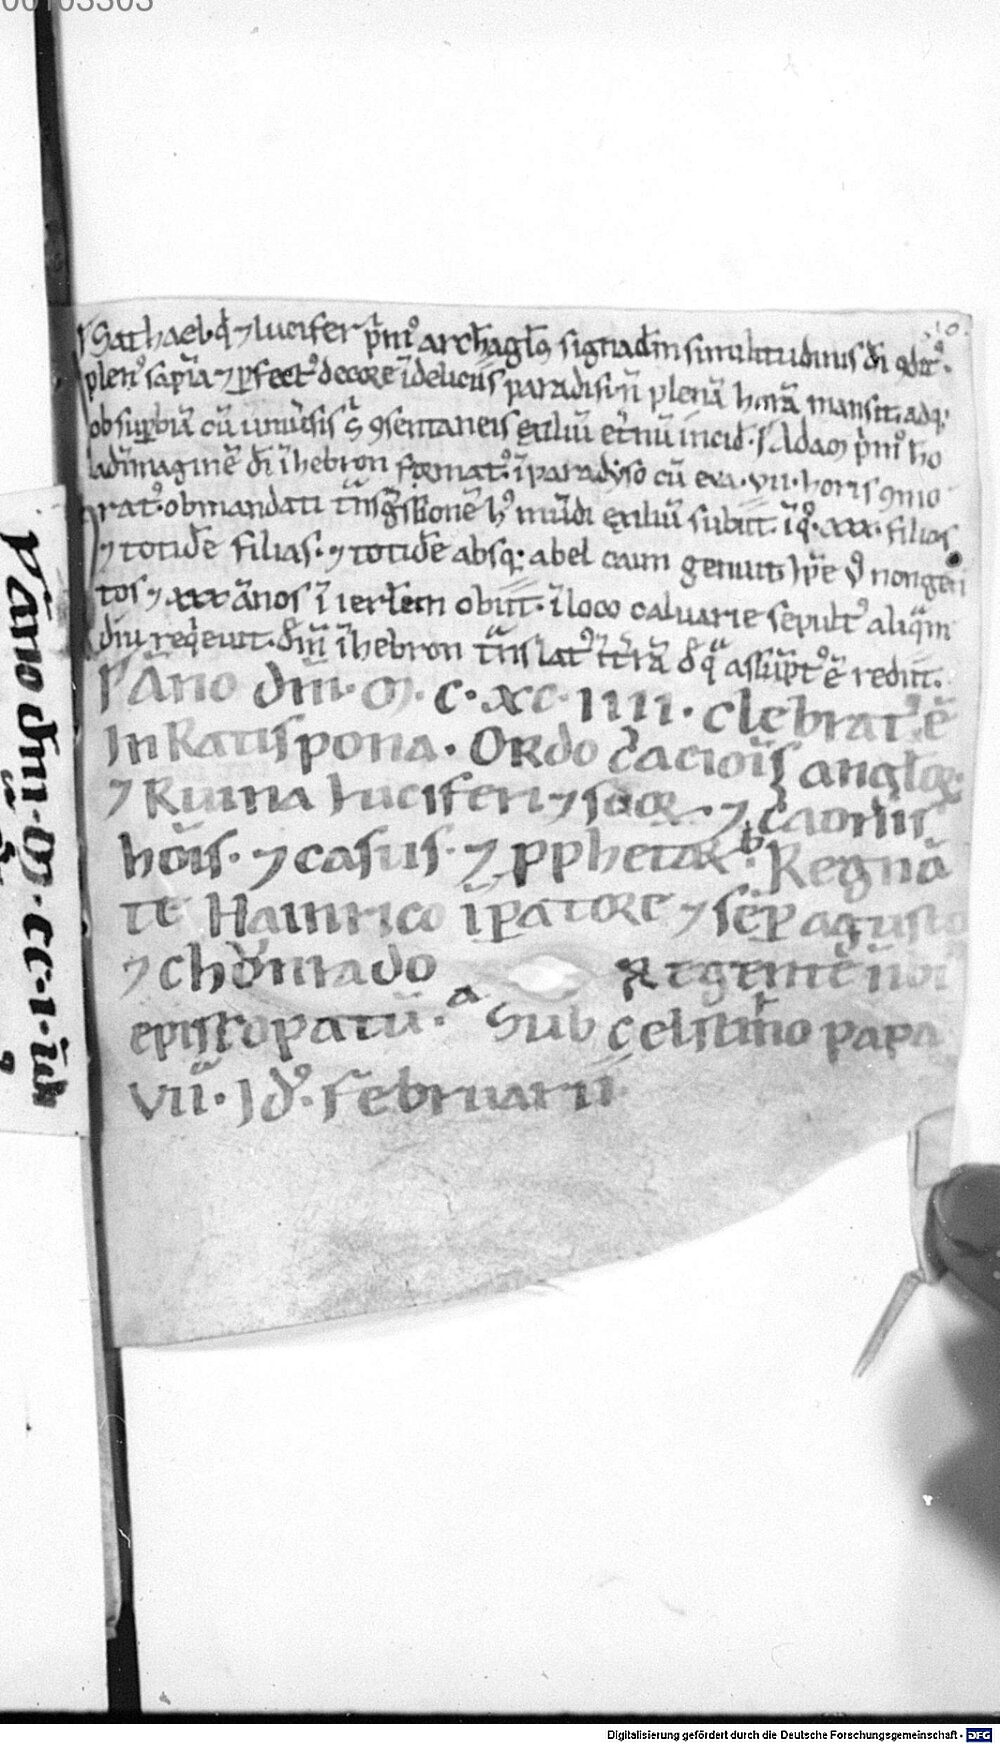 00103303
10.
Sathael. qd ⁊ lucifer pͥmꝰ archãgłs signadm similitudinis dī ꝯditꝰ.
plenꝰ sapīa ⁊ ꝑfectꝰ decore ī deliciis paradisi ñ plenā horā mansit. adq;
ob supbiā cū uniũsis sͥ ꝯsentaneis exiliū et̃nū incid̃. Adam pͥmꝰ ho
ad imaginē dī ī hebron formatꝰ. ī paradyso cū eva. vii. horis ꝯmo
ratꝰ. ob mandati tᷓnsgͥssionē hꝰ mūdi exiliū subiit. ī qͦ. xxx. filios
⁊ totidē filias. ⁊ totidē absq; abel caim genuit. nongen
tos ⁊ xxx ãnos ī ierl̄em obiit. ī loco caluarie sepultꝰ aliqͣm
diu reqͥeuit. ī hebron tᷓnslatꝰ ī t̃rā dͤ qᷓ assūptꝰ ē rediit.
Ãno dn̄i. ꝏ. c. xc. iiii. celebratꝰ ē
In Ratispona. Ordo c̃aciõis anglor.
⁊ Ruina luciferi ⁊ suor. ⁊ c̃aõis
hõis. ⁊ casus. ⁊ ꝓphetar.ᵇ Regnã
te Hainrico īꝑatore ⁊ sēꝑ agusto
⁊ Chͦvnrado Regentē
episcopatū.ᵃ Sub celestino papa
Viiᵃ. Idꝰ. februarii
Ãno dn̄i. ꝏ. cc. i.
Digitalisierung gefördert durch die Deutsche Forschungsgemeinschaft - DFG